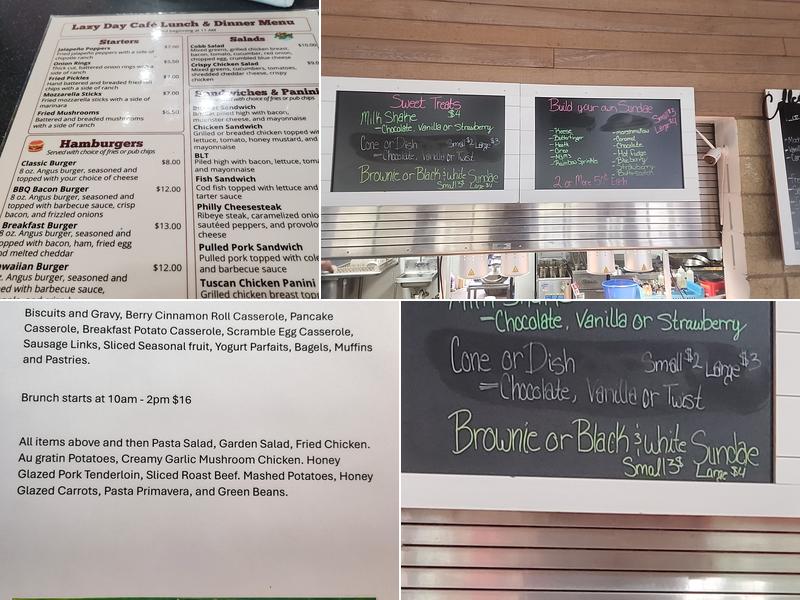 Lazy Day Café Lunch & Dinner Menu
beginning at 11 AM
Starters
Jalapeño Poppers $7.00
Fried jalapeño peppers with a side of
chipotle ranch
Onion Rings $5.50
Thick cut, battered onion rings with a
side of ranch
Fried Pickles
Hand battered and breaded fried
chips with a side of ranch
Mozzarella Sticks $7.00
Fried mozzarella sticks with a side of
marinara
Fried Mushrooms $6.50
Battered and breaded mushrooms
with a side of ranch
Hamburgers
Served with choice of fries or pub chips
Classic Burger $8.00
8 oz. Angus burger, seasoned and
topped with your choice of cheese
BBQ Bacon Burger $12.00
8 oz. Angus burger, seasoned and
topped with barbecue sauce, crisp
bacon, and frizzled onions
Breakfast Burger $13.00
8 oz. Angus burger, seasoned and
topped with bacon, ham, fried egg
and melted cheddar
waiian Burger $12.00
oz. Angus burger, seasoned and
ed with barbecue sauce,
Salads
Cobb Salad $10.00
Mixed greens, grilled chicken breast,
bacon, tomato, cucumber, red onion,
chopped egg, crumbled blue cheese
Crispy Chicken Salad $9.0
Mixed greens, cucumbers, tomatoes,
shredded cheddar cheese, crispy
chicken
Sandwiches & Panini
with choice of fries or pub chips
Sandwich
grilled beef with bacon,
muenster cheese, and mayonnaise
Chicken Sandwich
Grilled or breaded chicken topped wi
lettuce, tomato, honey mustard, an
mayonnaise
BLT
Piled high with bacon, lettuce, tom
and mayonnaise
Fish Sandwich
Cod fish topped with lettuce and
tarter sauce
Philly Cheesesteak
Ribeye steak, caramelized onio
sautéed peppers, and provolo
cheese
Pulled Pork Sandwich
Pulled pork topped with cole
and barbecue sauce
Tuscan Chicken Panini
Grilled chicken breast top
Sweet Treats
Milk Shake $4
- Chocolate, Vanilla or Strawberry
Cone or Dish Small $2 Large $3
- Chocolate, Vanilla or Twist
Brownie or Black & white Sundae
Small 3$ Large $4
Build your own Sundae
Small $3
Large $4
- Reese
- Butterfinger
- Heath
- Oreo
- M&M's
- Rainbow Sprinkles
- Marshmallow
- Caramel
- Chocolate
- Hot Fudge
- Blueberry
- Strawberry
- Butterscotch
2 or More 50¢ Each
Biscuits and Gravy, Berry Cinnamon Roll Casserole, Pancake
Casserole, Breakfast Potato Casserole, Scramble Egg Casserole,
Sausage Links, Sliced Seasonal fruit, Yogurt Parfaits, Bagels, Muffins
and Pastries.
Brunch starts at 10am - 2pm $16
All items above and then Pasta Salad, Garden Salad, Fried Chicken.
Au gratin Potatoes, Creamy Garlic Mushroom Chicken. Honey
Glazed Pork Tenderloin, Sliced Roast Beef. Mashed Potatoes, Honey
Glazed Carrots, Pasta Primavera, and Green Beans.
- Chocolate, Vanilla or Strawberry
Cone or Dish Small $2 Large $3
- Chocolate, Vanilla or Twist
Brownie or Black & white Sundae
Small 3$ Large $4